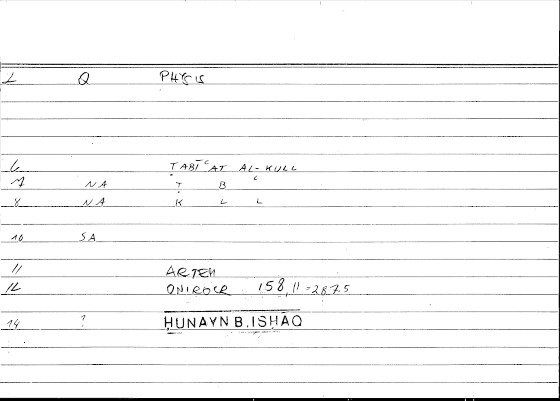 1 Q PHYSIS
6 ṬABĪʿAT AL-KULL
7 NA Ṭ B ʿ
8 NA K L L
10 SA
11 ARTEM
12 ONIROCR 158,11 = 2875
14 ? HUNAYN B. ISHAQ